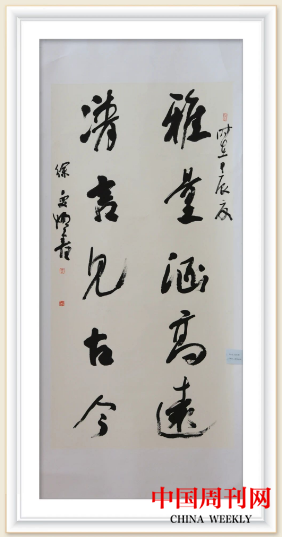 时在壬辰夏
雅量涵高遠
清言见古今
徐
中国周刊网
CHINA WEEKLY